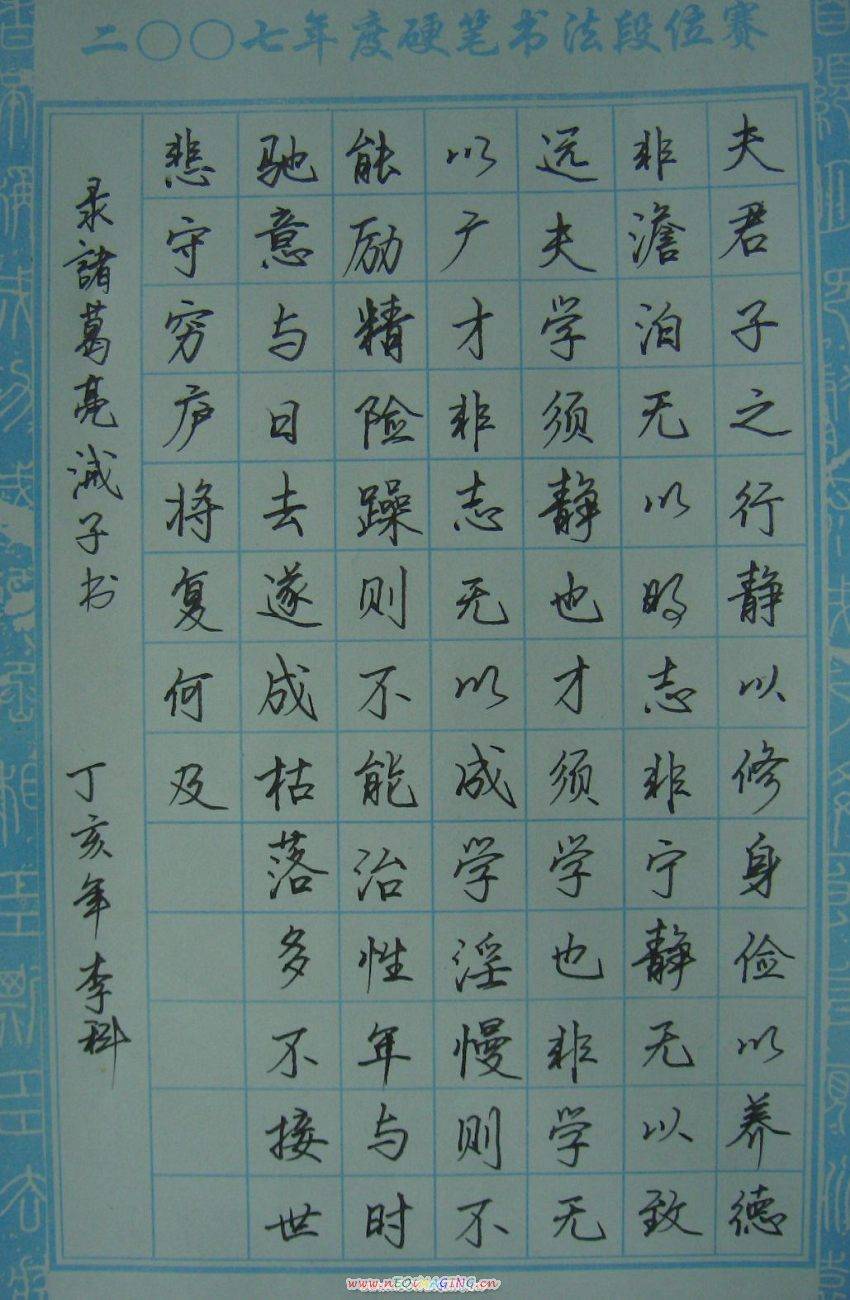 二〇〇七年度硬笔书法段位赛
夫君子之行静以修身俭以养德
非澹泊无以明志非宁静无以致
远夫学须静也才须学也非学无
以广才非志无以成学淫慢则不
能励精险躁则不能治性年与时
驰意与日去遂成枯落多不接世
悲守穷庐将复何及
录諸葛亮诫子书 丁亥年李科
www.nEOiMAGING.cn